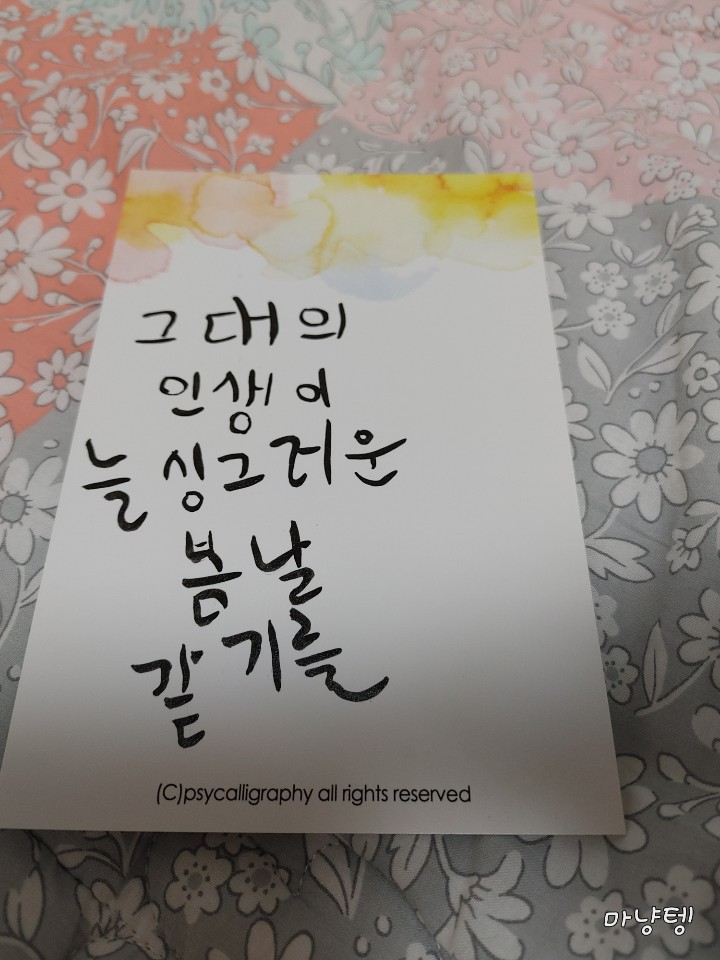 그대의
인생이
늘 싱그러운
봄날
같기를
(C)psycalligraphy all rights reserved
마냥텡